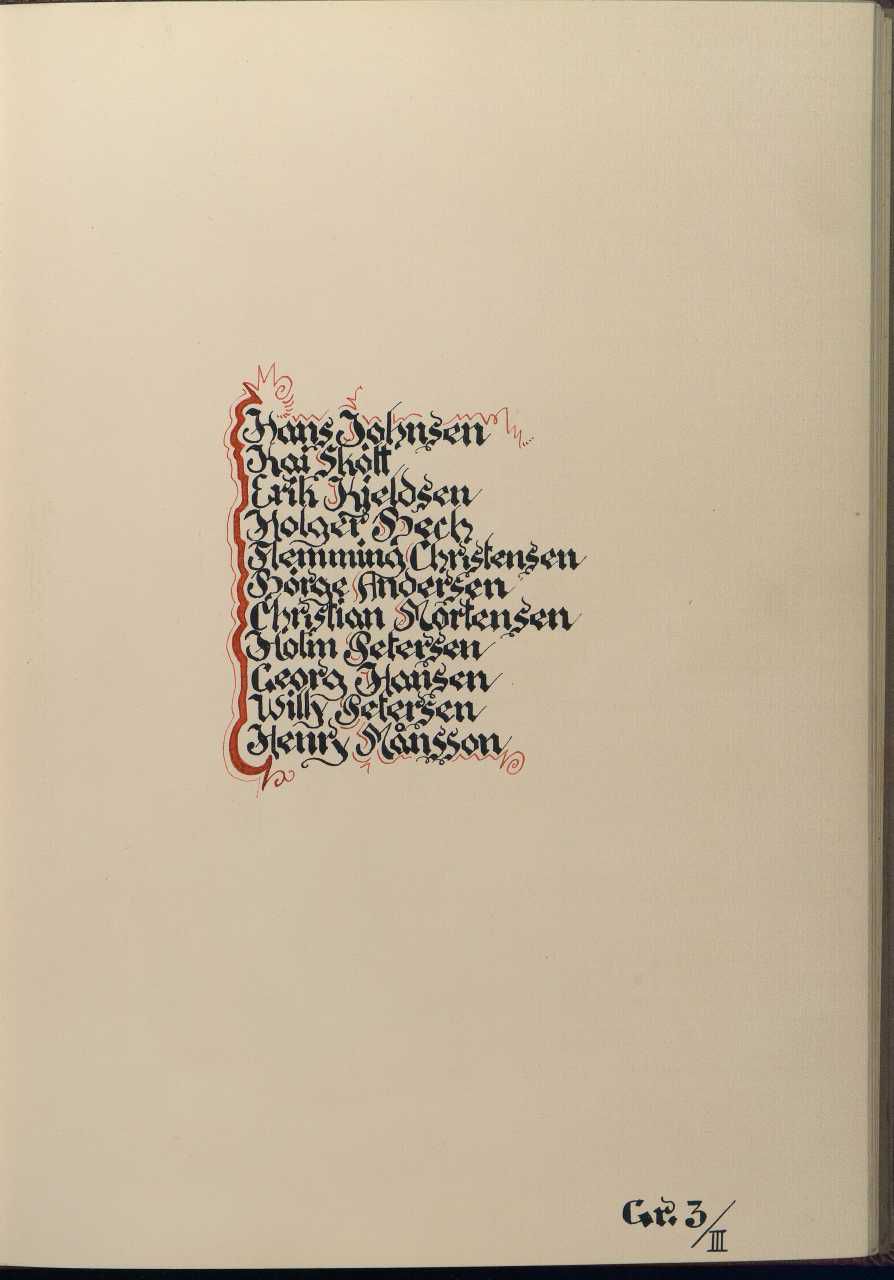 Hans Johnsen
Kai Skótt
Erik Kjeldsen
Holger Bech
Flemming Christensen
Börge Andersen
Christian Mortensen
Holm Petersen
Georg Hansen
Willy Petersen
Henry Månsson
Gr. 3/III